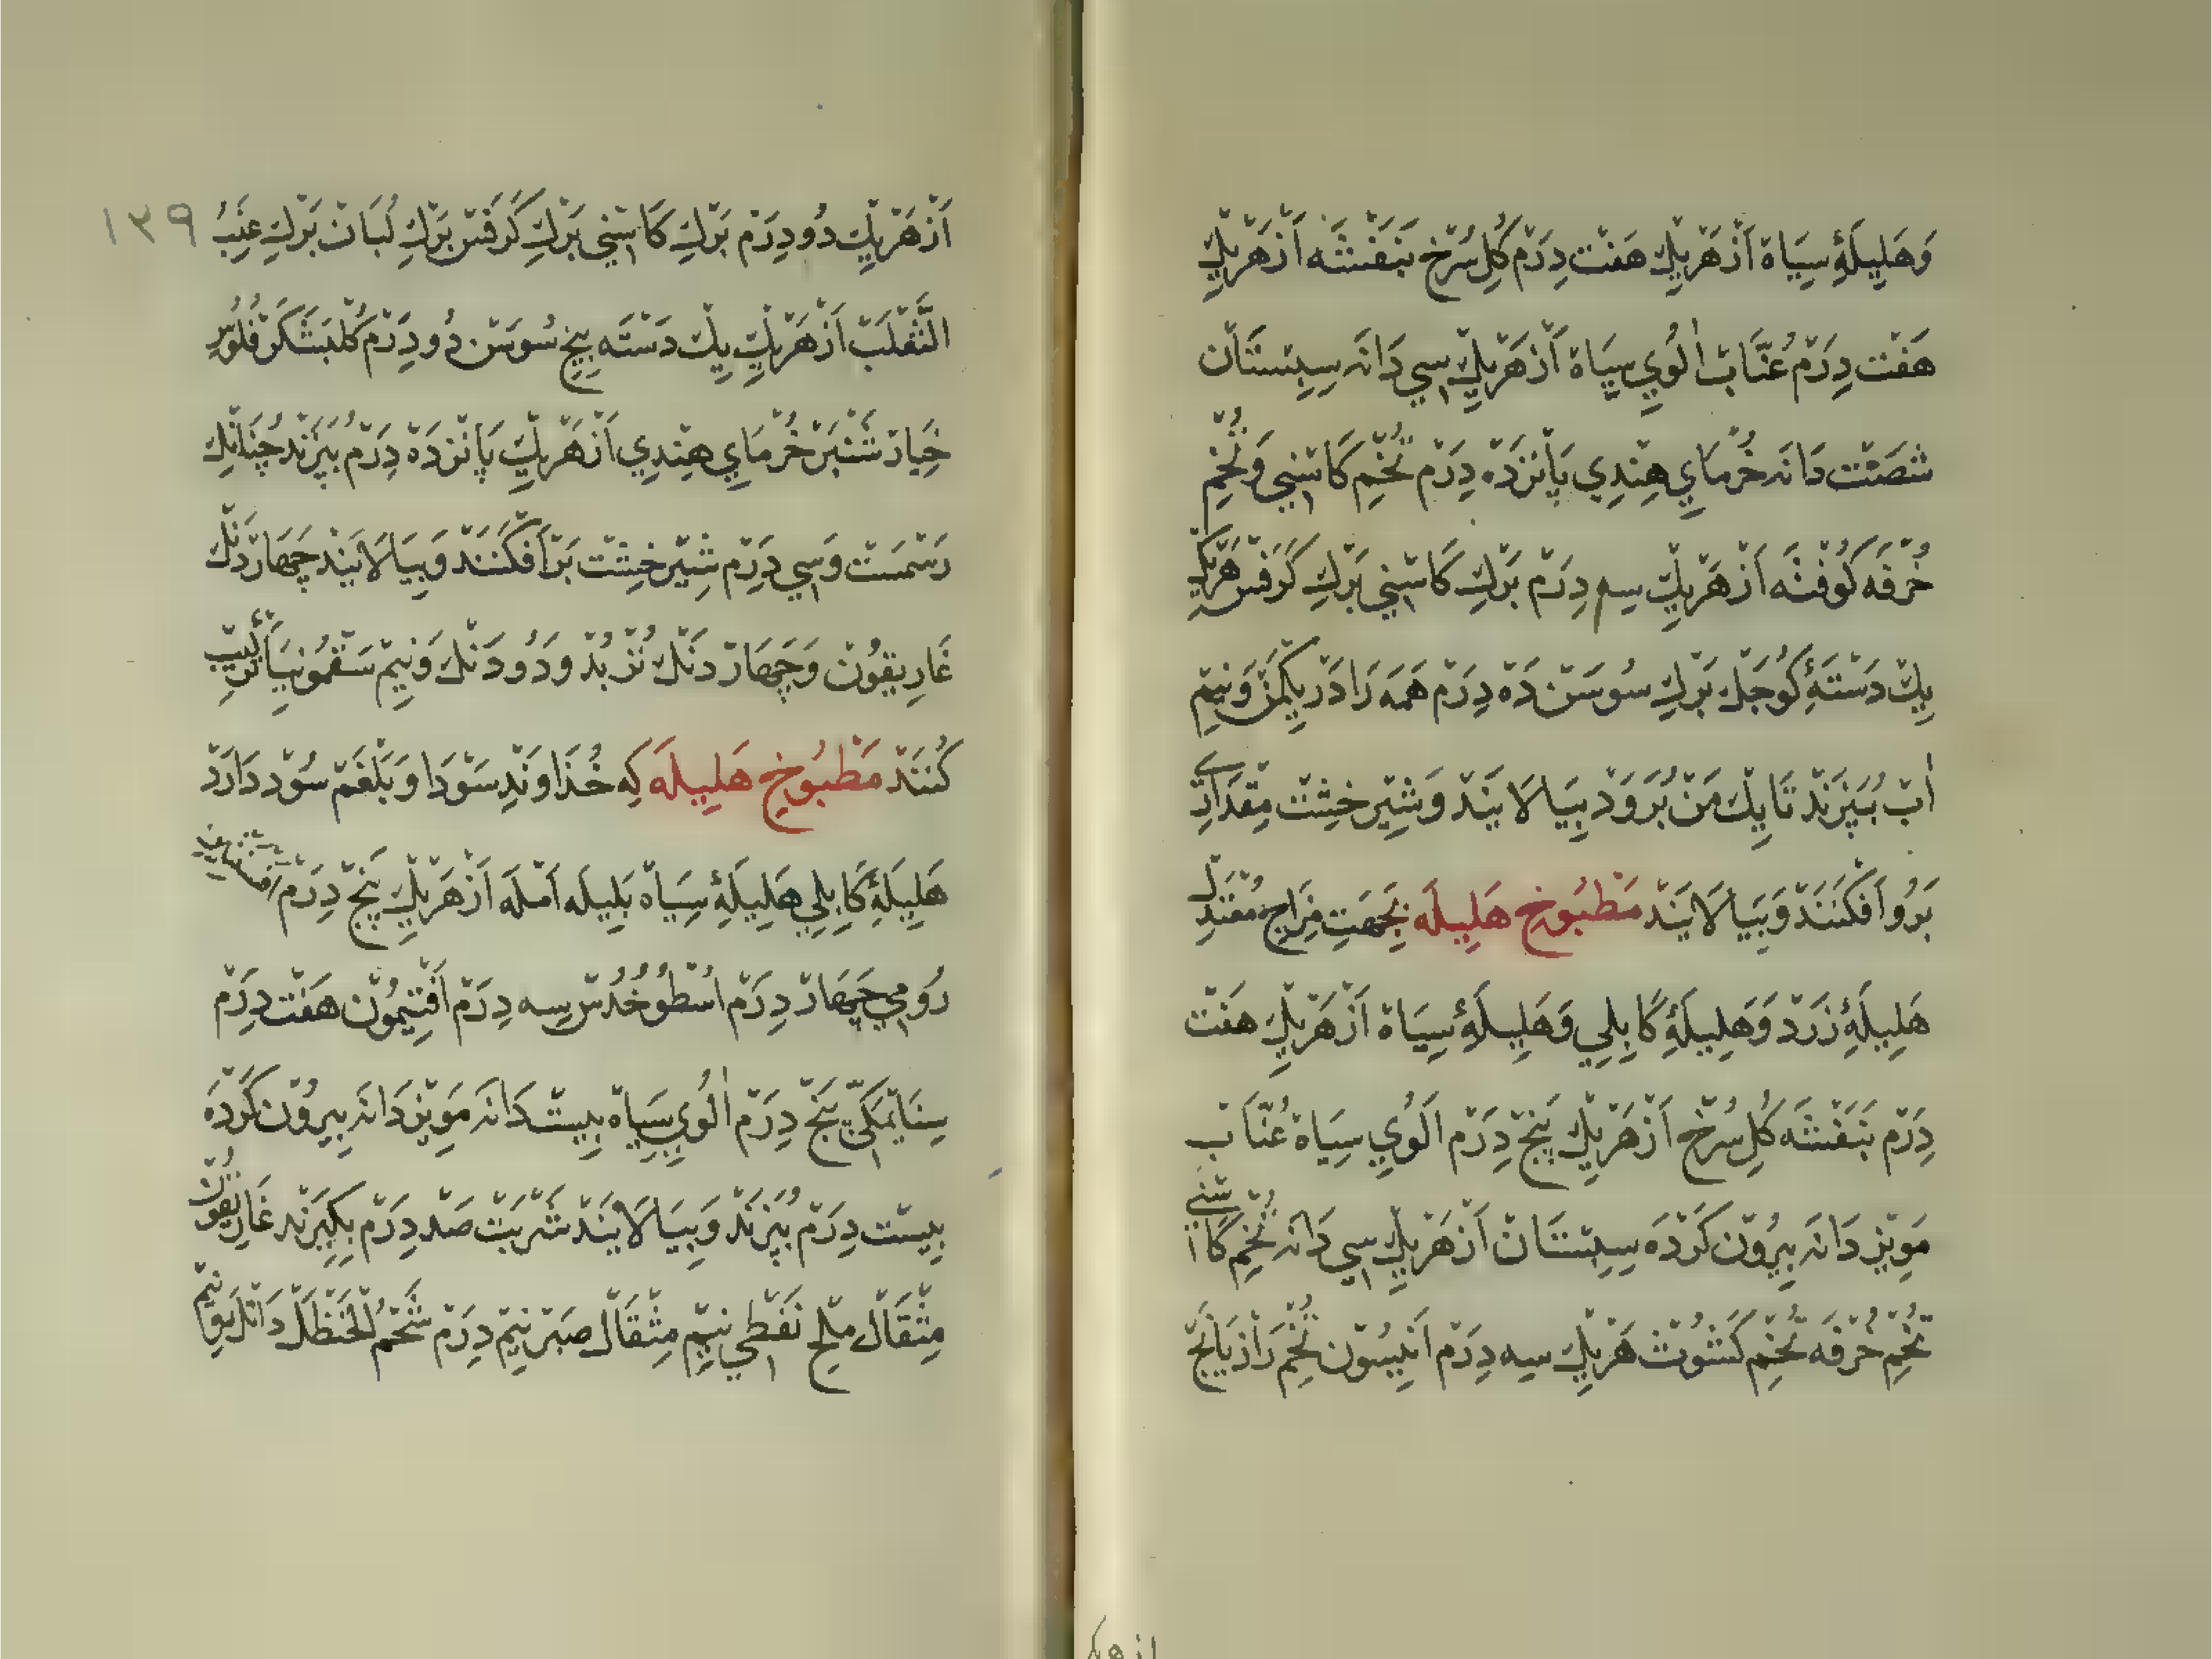 وَهَلِیلَهٔ سِیَاهْ اَزْ هَرْیِکْ هَفْتْ دِرَمْ کُلِ سُرْخْ بَنَفْشَه اَزْ هَرْیِكْ
هَفْتْ دِرَمْ عُنَّابْ اٰلُويِ سِیَاهْ اَزْ هَرْیِكْ سِي دَانَه سِپِسْتَانْ
شَصْتْ دَانَه خُرْمَايِ هِنْدِي پَانْزْدَهْ دِرَمْ تُخْمِ کَاسْنِي وَتُخْمِ
خُرْفَه کُوفْتَه اَزْ هَرْیِكْ سِه دِرَمْ بَرْكِ کَاسْنِي بَرْكِ کَرَفْسْ هَرْیِکْ
یِكْ دَسْتَهٔ کُوجَكْ بَرْكِ سُوسَنْ دَهْ دِرَمْ هَمَه رَا دَرْ یِکْمَنْ وَنِیمْ
اٰبْ بُپَزَنْدْ تَا یِكْ مَنْ بُرَوَدْ بِیَالَایَنْدْ وَشِیرْخِشْتْ مِقْدَارِي
بَرُو اَفْکَنَنْدْ وَبِیَالَایَنْدْ مَطْبُوخِ هَلِیلَه بِجِهَتِ مِزَاجِ مُعْتَدِلْ
هَلِیلَهٔ زَرْدْ وَهَلِیلَهٔ کَابِلِي وَهَلِیلَهٔ سِیَاهْ اَزْ هَرْیِكْ هَفْتْ
دِرَمْ بَنَفْشَه کُلِ سُرْخْ اَزْ هَرْیِكْ پَنْجْ دِرَمْ اٰلُويِ سِیَاهْ عُنَّابْ
مَوِیزِ دَانَه بِیرُونْ کَرْدَه سِپِسْتَانْ اَزْ هَرْیِكْ سِي دَانَه تُخْمِ کَاسْنِي
تُخْمِ خُرْفَه تُخْمِ کَشُوثْ هَرْیِكْ سِه دِرَمْ اَنِیسُونْ تُخْمِ رَازْیَانَجْ
از هریک
١٣٩
اَزْ هَرْیِكْ دُو دِرَمْ بَرْكِ کَاسْنِي بَرْكِ کَرَفْسْ بَرْكِ لُبَانْ بَرْكِ عِنَبُ
الثَّعْلَبْ اَزْ هَرْیِكْ یِكْ دَسْتَه بِیخِ سُوسَنْ دُو دِرَمْ کُلبَشَکَرْ فُلُوسِ
خِیَارْشَنْبَرْ خُرْمَايِ هِنْدِي اَزْ هَرْیِكْ پَانْزْدَهْ دِرَمْ بُپَزَنْدْ چُنَانْكِ
رَسْمَسْتْ وَسِي دِرَمْ شِیرْخِشْتْ بَرْ اَفْکَنَنْدْ وَبِیَالَایَنْدْ چَهَارْ دَنْكْ
غَارِیقُونْ وَچَهَارْ دَنْكْ تُرْبُدْ وَدُو دَنْكْ وَنِیمْ سَقْمُونِیَا تَرْکِیبْ
کُنَنْدْ مَطْبُوخِ هَلِیلَه کِه خُذَاوَنْدِ سَوْدَا وَبَلْغَمْ سُوْد دَارَدْ
هَلِیلَهٔ کَابِلِي هَلِیلَهٔ سِیَاهْ بَلِیلَه اَمْلَه اَزْ هَرْیِكْ پَنْجْ دِرَمْ افسنتین
رُومِي چَهَارْ دِرَمْ اُسْطُوخُدُسْ سِه دِرَمْ اَفْتِیمُونْ هَفْتْ دِرَمْ
سِنَايْمَکِّي پَنْجْ دِرَمْ اٰلُويِ سِیَاهْ بِیسْتْ دَانَه مَوِیزِ دَانَه بِیرُونْ کَرْدَه
بِیسْتْ دِرَمْ بُپَزَنْدْ وَبِیَالَایَنْدْ شَرْبَتْ صَد دِرَمْ بِکِیرَنْد غَارِیقُونْ
مِثْقَالْ مِلْحِ نَفْطِي نِیمْ مِثْقَالْ صَبَرْ نِیمْ دِرَمْ شَحْمُ الْحَنْظَلْ دَانْكِي وَنِیمْ